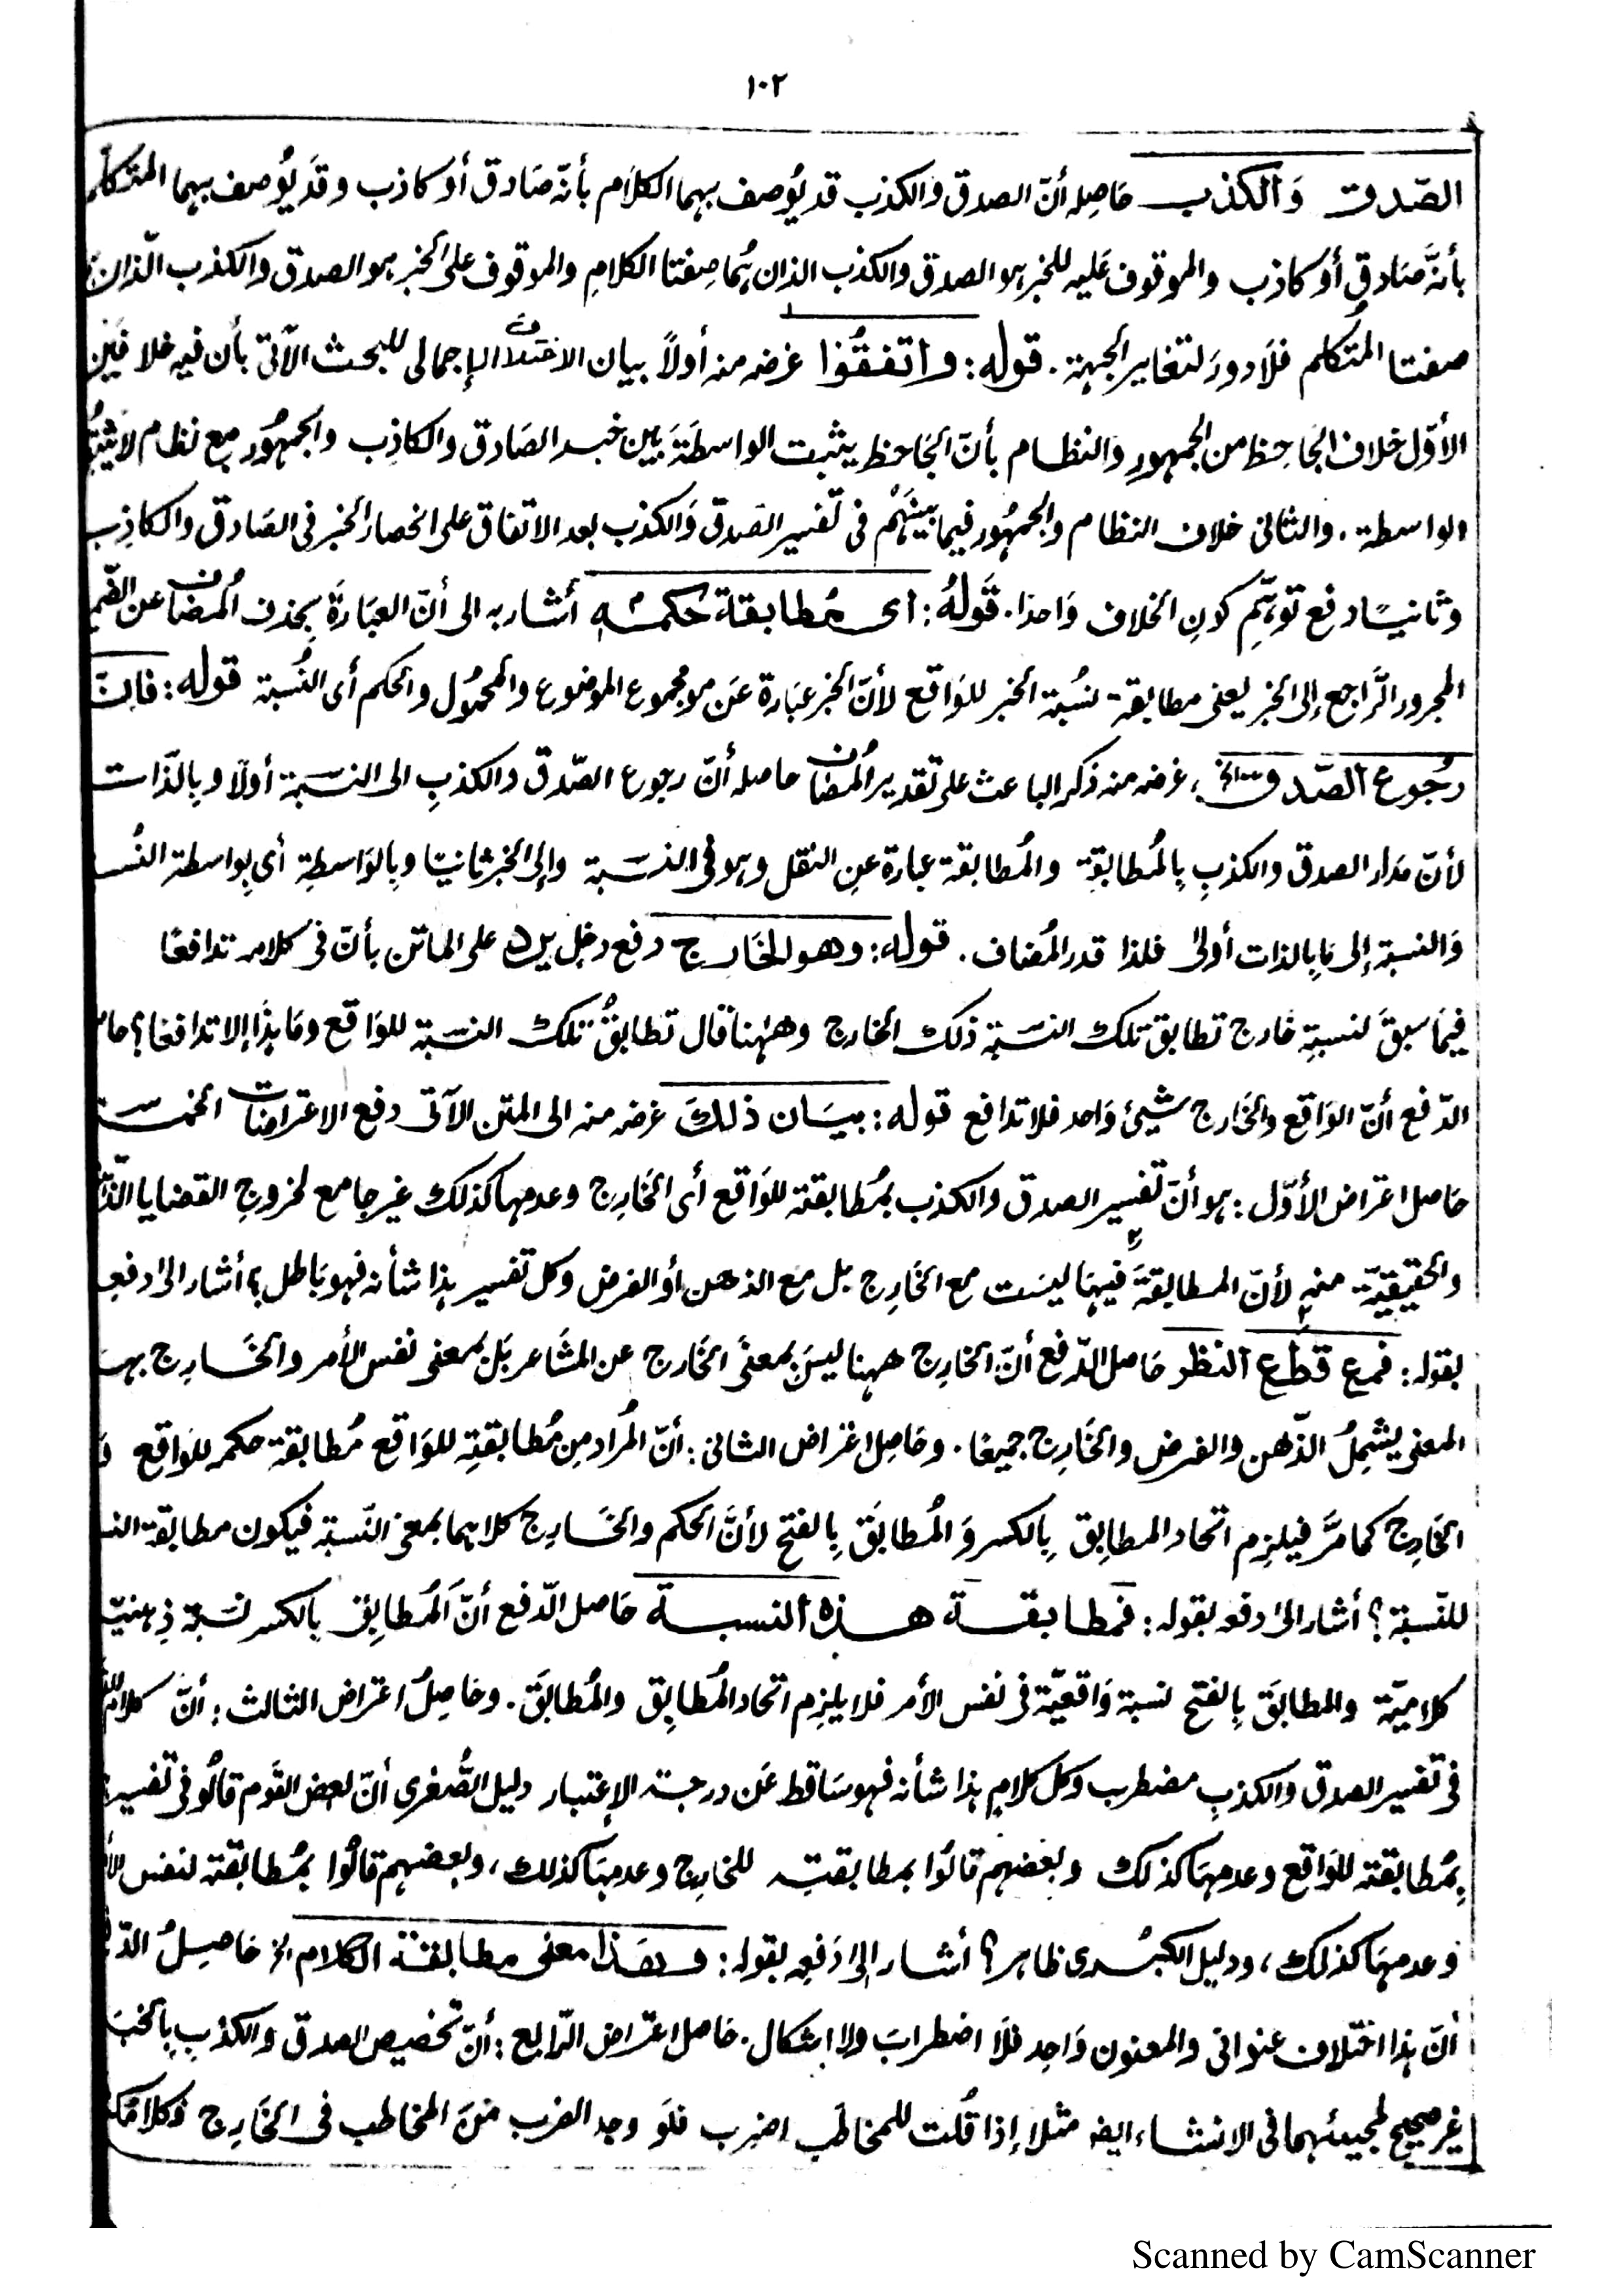 ١٠٢
الصّدق وَالكذب حَاصِله أنّ الصدق والكذب قد يُوصف بهما الكلَام بأنّه صَادق أو كاذب وقَد يُوصف بهما المتكلم
بأنّه صَادق أو كاذب والموقوف عَليه للخبر هو الصدق والكذب الذان هُمَا صِفتا الكلامِ والموقوف على الخبر هو الصدق والكذب الّذان
صفتا المُتكلم فلَا دورَ لتغاير الجهة . قوله : واتفقُوا غرضه منه أولاً بيان الاختلاف الإجمالى للبحث الآتى بأن فيه خلافَين
الأوّل خلاف الجَاحِظ من الجمهورِ والنظام بأنّ الجَاحظ يثبت الواسطَةَ بَين خبر الصَادق والكاذِب والجمهُور مع نظام لا يثبتُ
الواسطة . والثانى خلاف النظام والجمهُور فيما بينهُم فى تفسير الصَدق وَالكذب بعد الاتفاق على انحصار الخبر فى الصَادق والكاذِب
وثانيًا دفع توهّمِ كونِ الخلاف وَاحدا . قَولهُ : اى مُطابقة حُكمه أشار به الى أنّ العبَارةَ بِحذف المُضاف عن الضّمير
المجرور الرَّاجع إلى الخبر يعنى مطابقة نسُبة الخبر للوَاقع لأنّ الخبر عبَارة عَن مجموع الموضوع والمحمُول والحكم أى النُسبة قوله : فانّ
رجُوع الصّدق الخ ، غرضه منه ذكر الباعث على تقدير المُضاف حاصله أنّ رجوع الصّدق والكذبِ الى النسَبة أولاً وبالذّات
لأنّ مَدار الصدق والكذبِ بِالمُطابقةِ والمُطابقة عبارة عنِ النقل وهو فى النسَبة وإلى الخبر ثانيًا وبِالوَاسطةِ أى بِواسطة النُسبة
وَالنسبة إلى مَا بِالذات أولىٰ فلذا قدر المُضاف . قوله : وهو الخَارج دفع دخل يرد على الماتن بأنّ فى كلامه تدافعًا
فيمَا سبقَ لنسبةٍ خارج تطابق تلك النسَبة ذلك الخارج وههُنا قال تطابقُ تلك النسَبة للوَاقع ومَا هذَا إلا تدافعا ؟ حاصل
الدّفع أنّ الوَاقع والخَارج شيئ وَاحد فلا تدافع قوله : بيَان ذلكَ غرضه منه الى المتن الآتى دفع الاعتراضات الخمسَة
حَاصل اعتراض الأوّل : هو أنّ تفسير الصدق والكذب بمُطابقته للوَاقع أى الخَارِج وعدمها كذلك غير جامع لخروج القضايا الذّهنية
والحقيقيّة منه لأنّ المطابقةَ فيهَا ليسَت مع الخَارِج بل مع الذهن أو الفرض وكل تفسير هذا شأنه فهو بَاطل ؟ أشار الىٰ دفعه
بقوله : فمع قطع النظر حَاصل الدّفع أنّ الخارِج ههنا ليسَ بمعنَى الخَارج عن المشَاعر بَل بمعنى نفس الأمر والخَارج بهذا
المعنى يشمِلُ الذّهن والفرض والخَارج جميعًا . وحَاصِل اعتراض الثانى : أنّ المُراد مِن مُطابقتِه للوَاقع مُطابقة حكمه للوَاقع
الخَارِج كما مرَّ فيلزِم اتحاد المطابِق بِالكسر وَالمُطابَق بِالفتح لأنَّ الحكم والخَارج كلاهما بمعنى النّسبة فيكون مطابقة النسبة
للنّسبة ؟ أشار الىٰ دفعه بقوله : فمطابقة هذه النسبة حَاصل الدّفع أنّ المُطابِق بالكسر نسَبة ذِهنيّة
كلاميّة والمطابَق بِالفتح نسبة وَاقعيّة فى نفس الأمر فلا يلزِم اتحاد المُطابِق والمُطابَق . وحَاصِلُ اعتراض الثالث : أنّ كلام القوم
فى تفسير الصدق والكذبِ مضطرب وكل كلامٍ هذا شأنه فهو سَاقط عَن درجة الإعتبار دليل الصُّغرى أنّ بعض القَوم قالُو فى تفسير
بِمُطابقته للوَاقع وعدمهَا كذلك وبعضهم قالُوا بمطابقتِه للخَارِج وعدمهَا كذلك ، وبعضهم قالُوا بمُطابقته لنفس الأمر
وعدمهَا كذلك ، ودليل الكبرى ظاهر ؟ أشار إلىٰ دَفعِه بقوله : وهٰذا معنى مطابقة الكلام الخ حَاصِلُ الدّفع
أنّ هذا اختلاف عنوانى والمعنون وَاحِد فلَا اضطرابَ ولا اشكال . حَاصل اعتراض الرّابع : أنّ تخصيص الصدق والكذبِ بِالخبَر
غير صحيح لمجيئهما فى الانشاء ايضا مثلا إذا قُلت للمخاطَب اضرِب فلَو وجد الضرب منَ المخاطب فى الخَارِج فكلامُك
Scanned by CamScanner